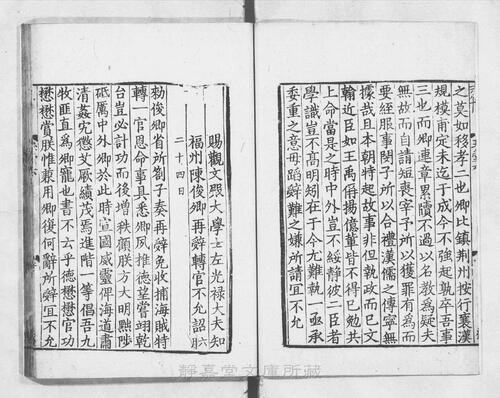 之莫如移孝二也卿比鎮荆州按行襄漢
規模甫定未迄于成今不強起孰卒吾事
三也而卿連章累牘不過以名教爲疑夫
無故而自請短喪宰予所以獲罪有爲而
要絰服事閔子所以合禮漢儒之傳寧無
據哉且本朝特起故事非但執政而已文
翰近臣如王禹偁楊億輩皆不得已勉共
上命當是之時中外豈不綏靜彼二臣者
學識豈不髙明矧在于今尤難執一亟承
委重之意毋蹈辭難之嫌所請宜不允
賜觀文殿大學士左光禄大夫知
福州陳俊卿再辭轉官不允詔六月
二十四日
敕俊卿省所劄子奏再辭免收捕海賊特
轉一官恩命事具悉卿夙推德望嘗翊乾
台豈必計功而後增秩顧朕方大明黜陟
砥厲中外卿於此時宣國威靈俾海道肅
清姦宄懲艾厥績茂焉進階一等倡吾九
牧匪直爲卿寵也書不云乎德懋懋官功
懋懋賞朕惟兼用卿復何辭所辭宜不允
静嘉堂文庫所蔵